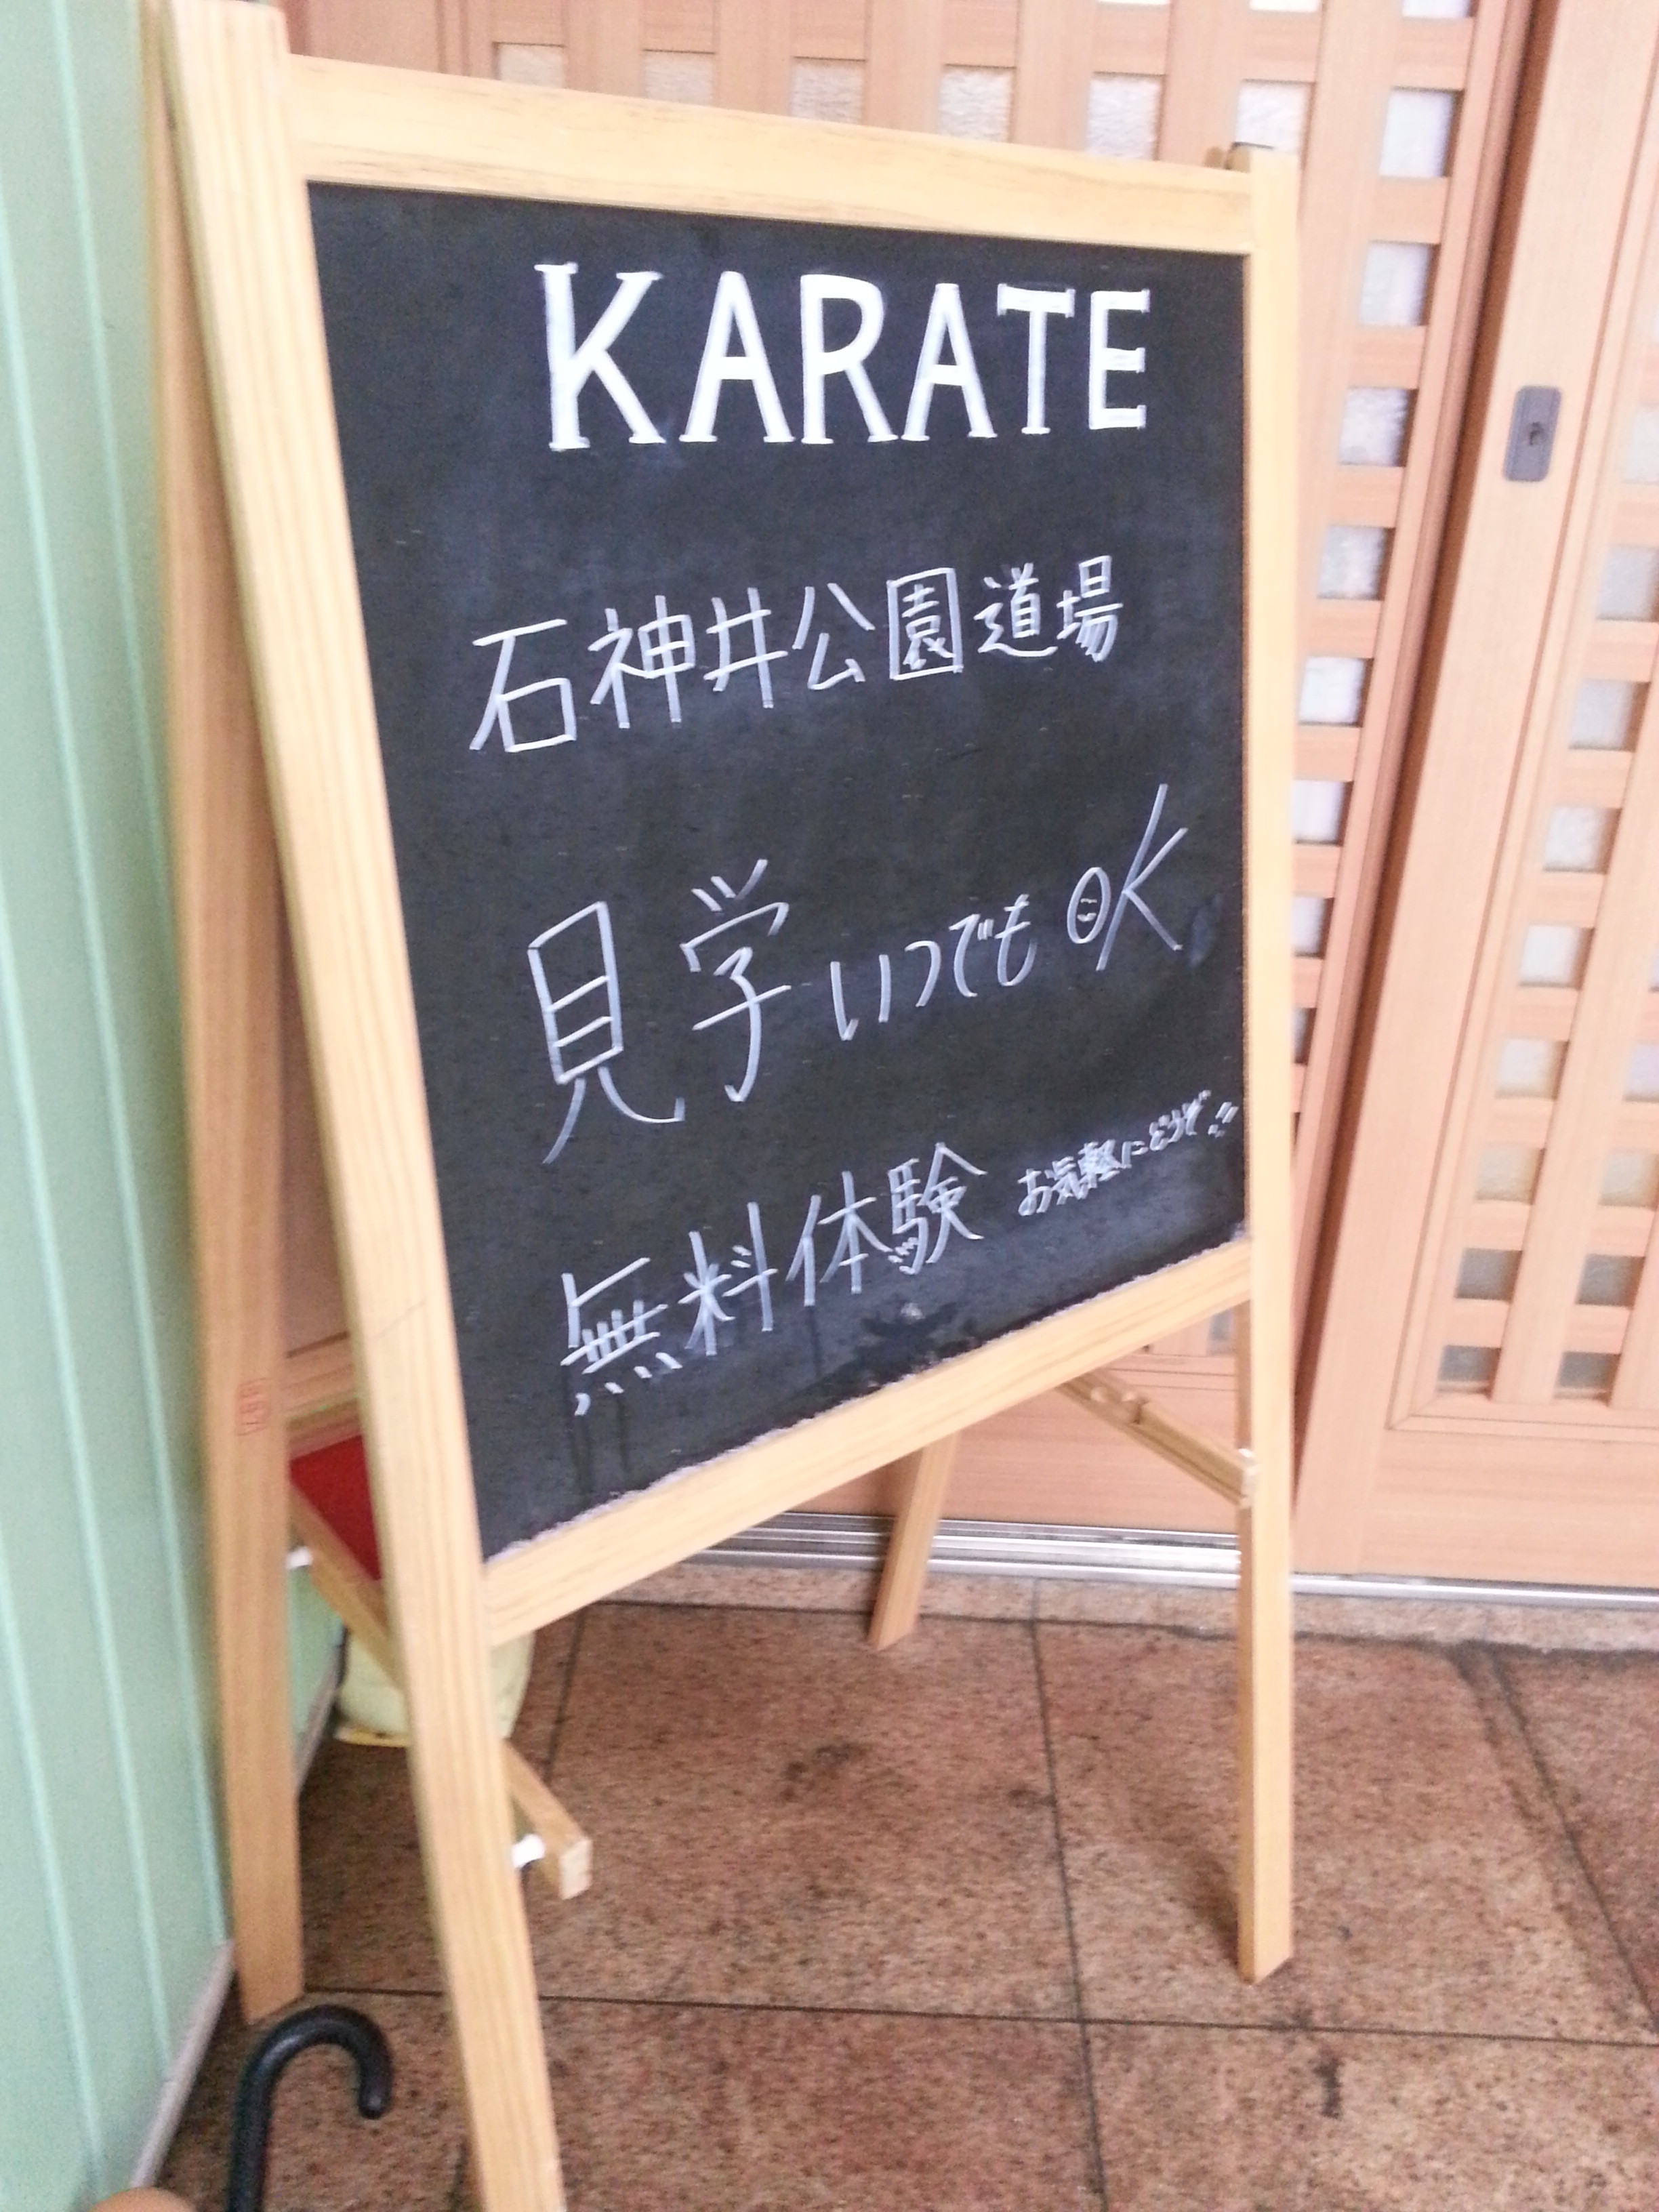 KARATE
石神井公園道場
見学いつでもOK
無料体験 お気軽にどうぞ!!